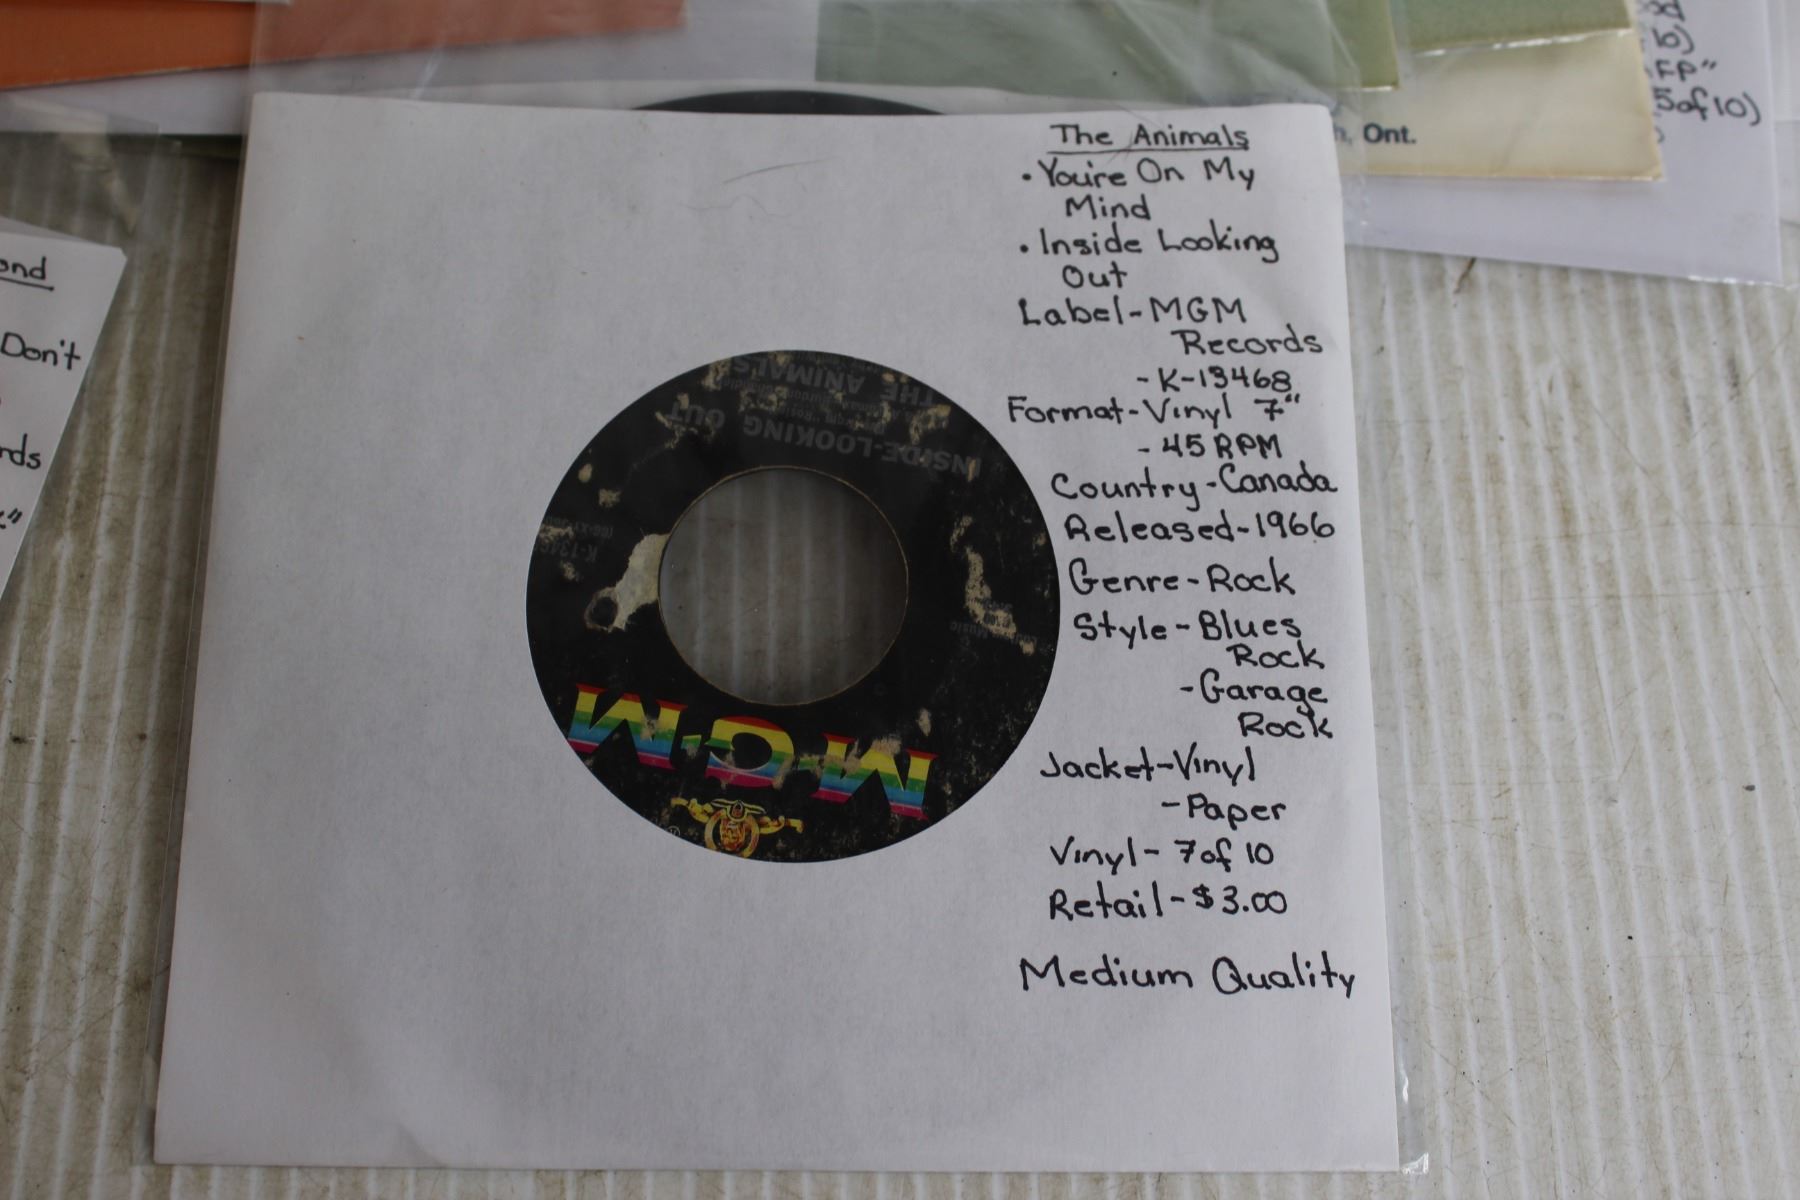 The Animals
• You're On My
Mind
• Inside Looking
Out
Label-MGM
Records
- K-13468
Format-Vinyl 7"
- 45 RPM
Country-Canada
Released-1966
Genre-Rock
Style-Blues
Rock
-Garage
Rock
Jacket-Vinyl
-Paper
Vinyl- 7 of 10
Retail-$3.00
Medium Quality
M·G·M
INSIDE-LOOKING OUT
THE ANIMALS
Music
Don't
5 of 10)
Ont.